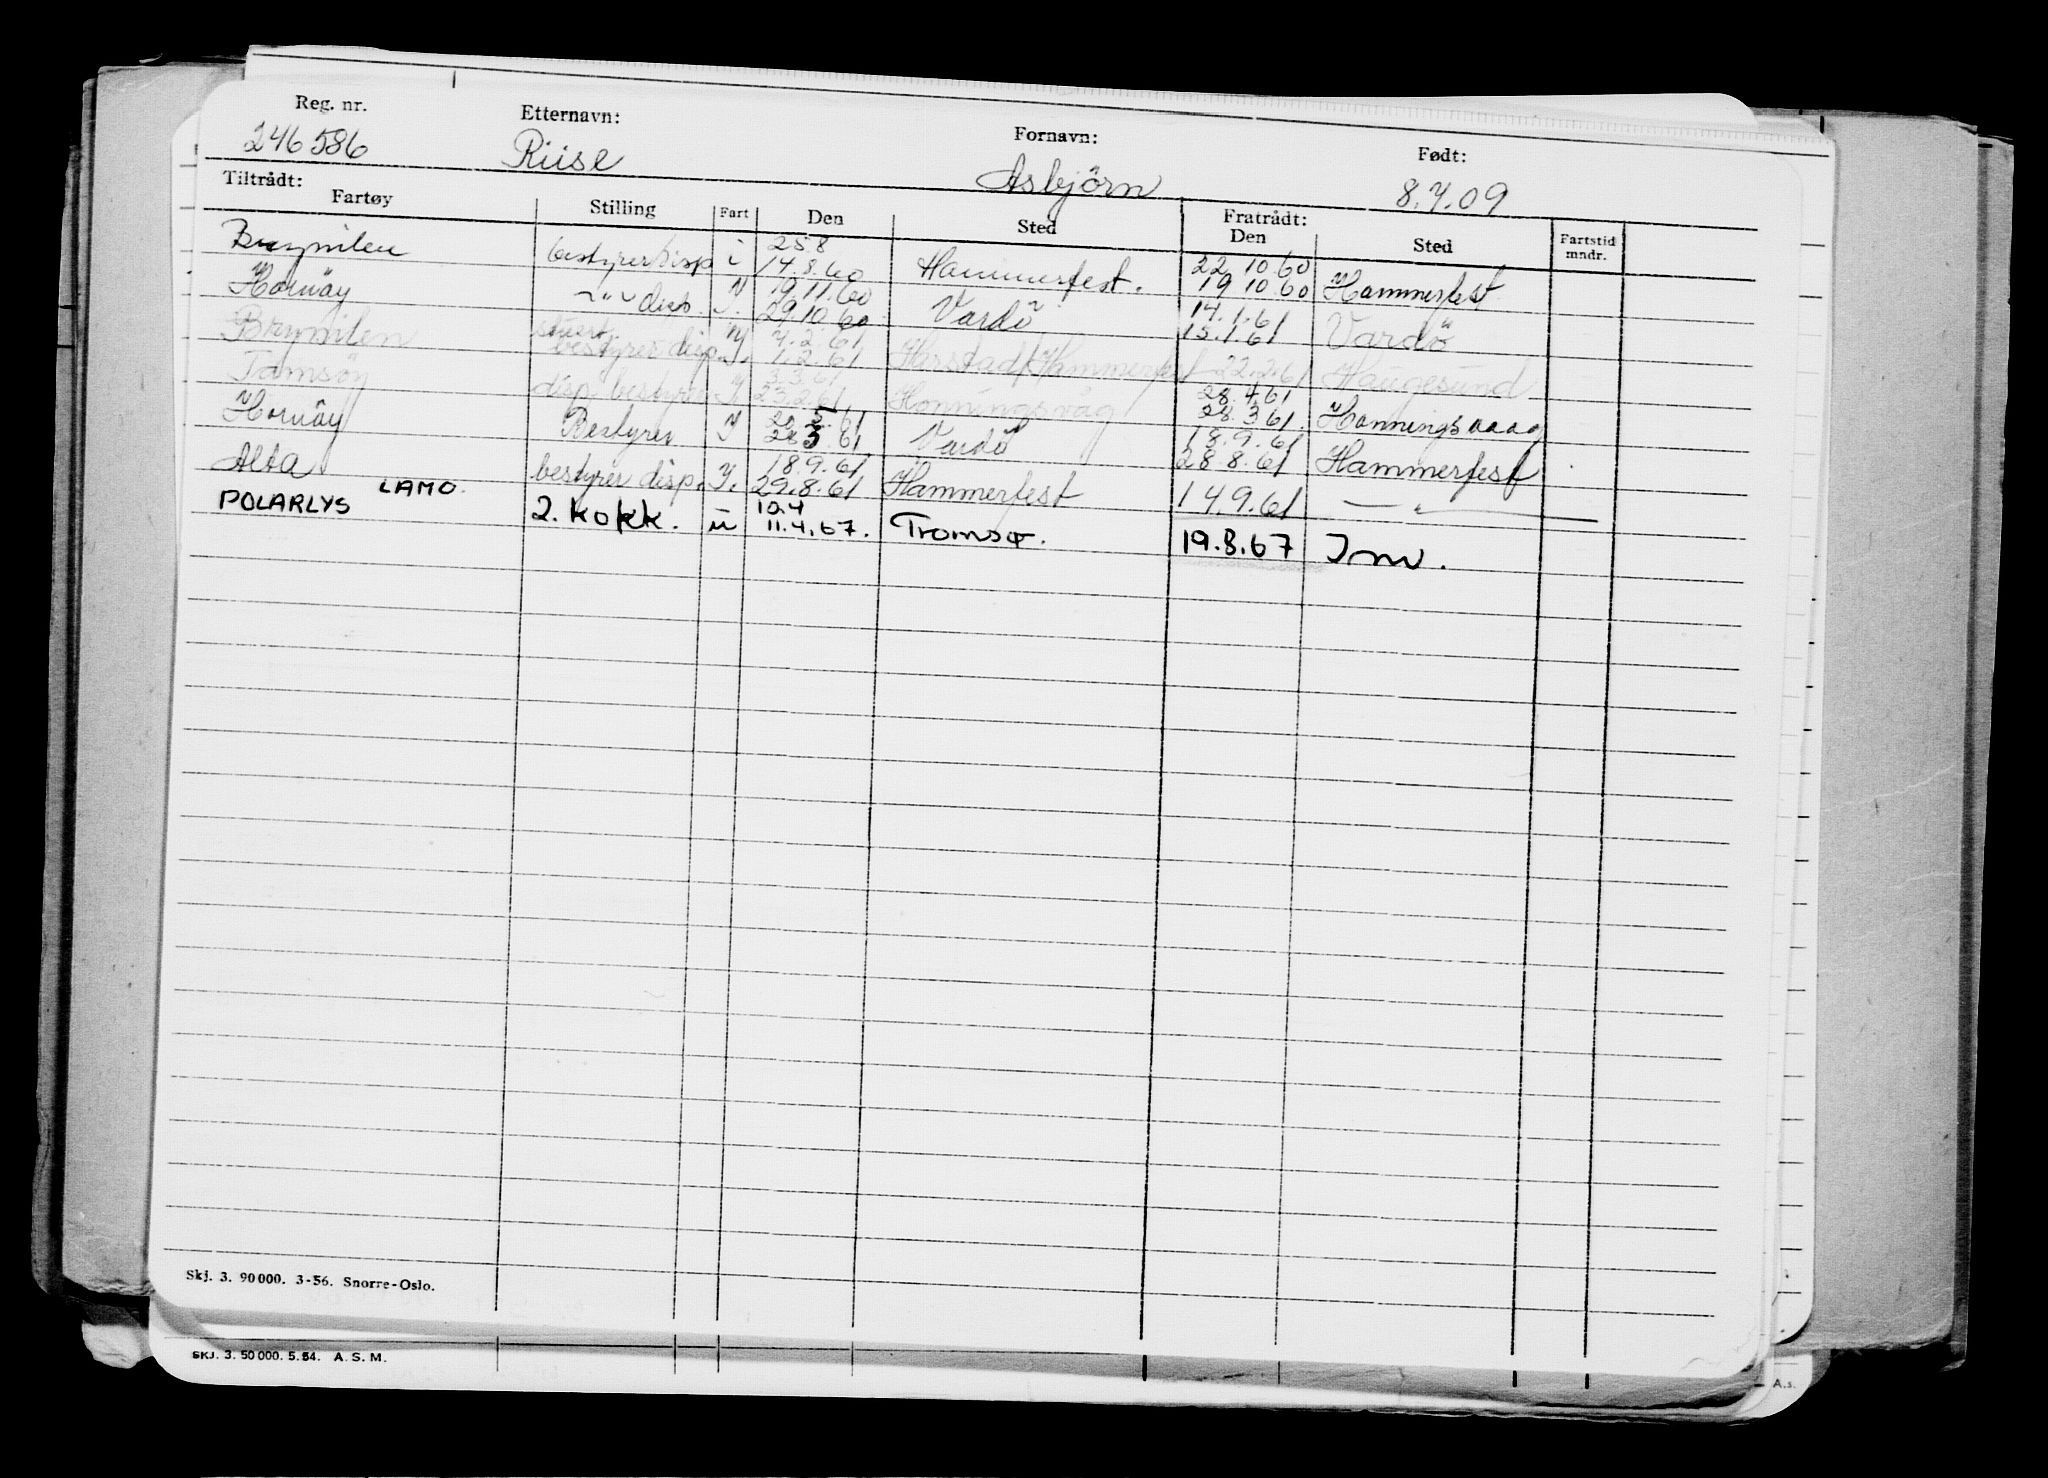 Reg. nr. Etternavn: Fornavn: Født:
246586 Riise Asbjörn 8.4.09
Tiltrådt: Fratrådt:
Fartøy Stilling Fart Den Sted Den Sted Fartstid mndr.
258 22 10.60
Brynilen bestyrer disp i 14.8.60 Hammerfest. 19 10.60 Hammerfest
19.11.60 14.1.61
Hornöy -"- disp. I. 29.10.60 Vardö 15.1.61 Vardö
stuert 4.2.61
Brynilen bestyrer disp. I. 1.2.61 Harstad/Hammerfest 22.2.61 Haugesund
3.3.61 28.4.61
Tamsöy disp. bestyrer I. 23.2.61 Honningsvåg 28.3.61 Honningsvaag
20.5.61 18.9.61
Hornöy Bestyrer I 28 3 61 Vardö 28.8.61 Hammerfest
18.9.61
Alta bestyrer disp. I. 29.8.61 Hammerfest 14.9.61 — " —
LAMO. 10.4
POLARLYS 2. kokk. u 11.4.67. Tromsø. 19.8.67 Inv.
Skj. 3. 90000. 3-56. Snorre-Oslo.
SKJ. 3. 50 000. 5. 54. A. S. M.
A.s.